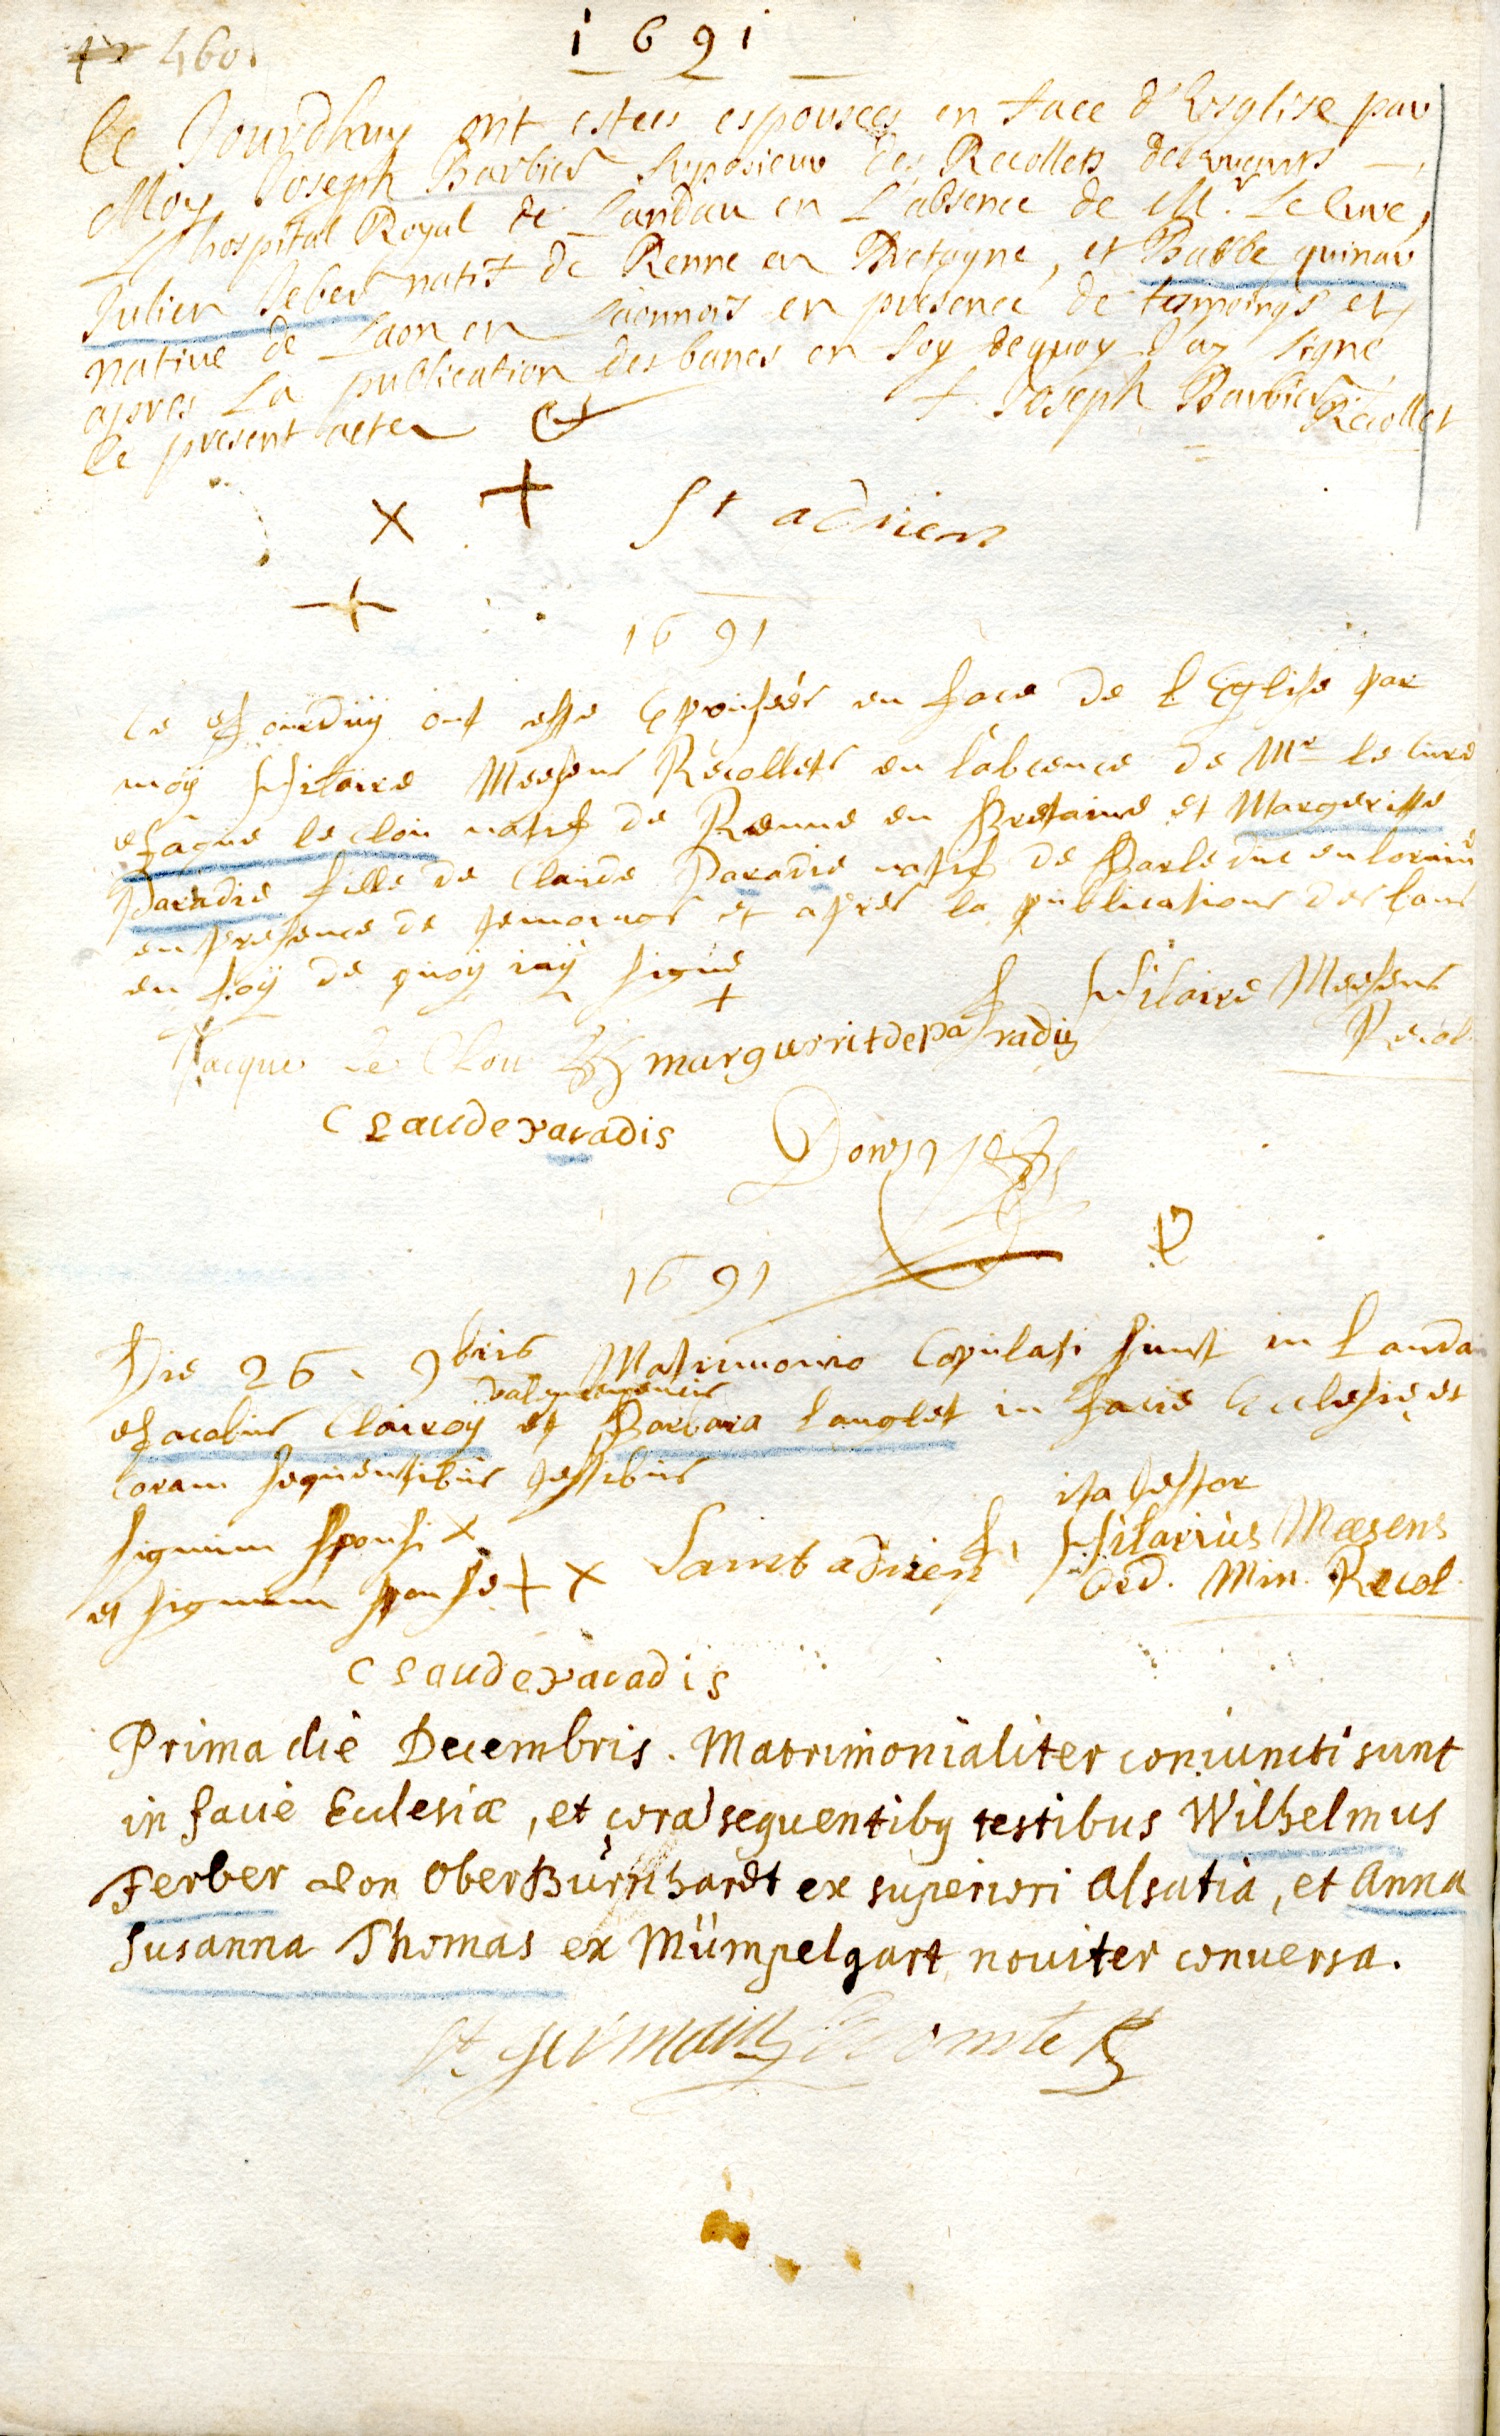 460.
1691
Ce Jourdhuy ont estees espousees en face d'Esglise par
Moy Joseph Barbier Superieur des Recollets deservants
L'hospital Royal de Landau en L'absence de Mr. Le Cure,
Julien Feber natif de Renne en Bretagne, et Babbe quinar
native de Laon en Laonnois en presence de tesmoings et
apres La publication des bancs en foy de quoy J'ay signé
le present acte
f. Joseph Barbier
Recollet
x + St adrien
+
1691
Ce Jourduy ont esté Epouséés en face de l'Eglise par
moÿ Hilaire Meesens Recollets en l'abcence de Mr le cure
Jâque le clou natif de Renne en Bretaine et Margeritte
Paradis fille de Claude Paradis natif de Barleduc en loraine
en presence de temoings et apres la publications des bans
en foÿ de quoÿ iaÿ signé
f Hilaire Meesens
Recol.
+
Jacque le Clou marguerit de paradis
Claude paradis
1691
Die 26. 9bris Matrimonio Copulati sunt in Landau
Jacobus Clairoy et Barbara langlet in facie Ecclesie et
coram sequentibus testibus
ita testor
signum sponsi x
f. Hilarius Mæsens
et signum sponse + x Saint adrien
Ord. Min. Recol.
Claude paradis
Prima die Decembris. Matrimonialiter coniuncti sunt
in facie Eclesiæ, et corā sequentibq testibus Wilhelmus
Ferber von OberBürnhardt ex superiori Alsatia, et Anna
Susanna Thomas ex Mümpelgart noviter conversa.
St germain Lecomte